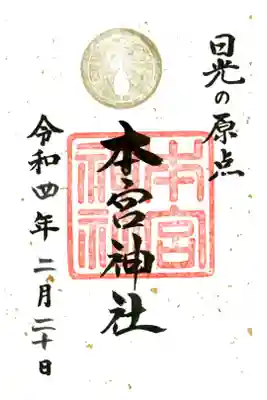 日光の原点
本宮神社
令和四年 二月二十日
本宮
神社